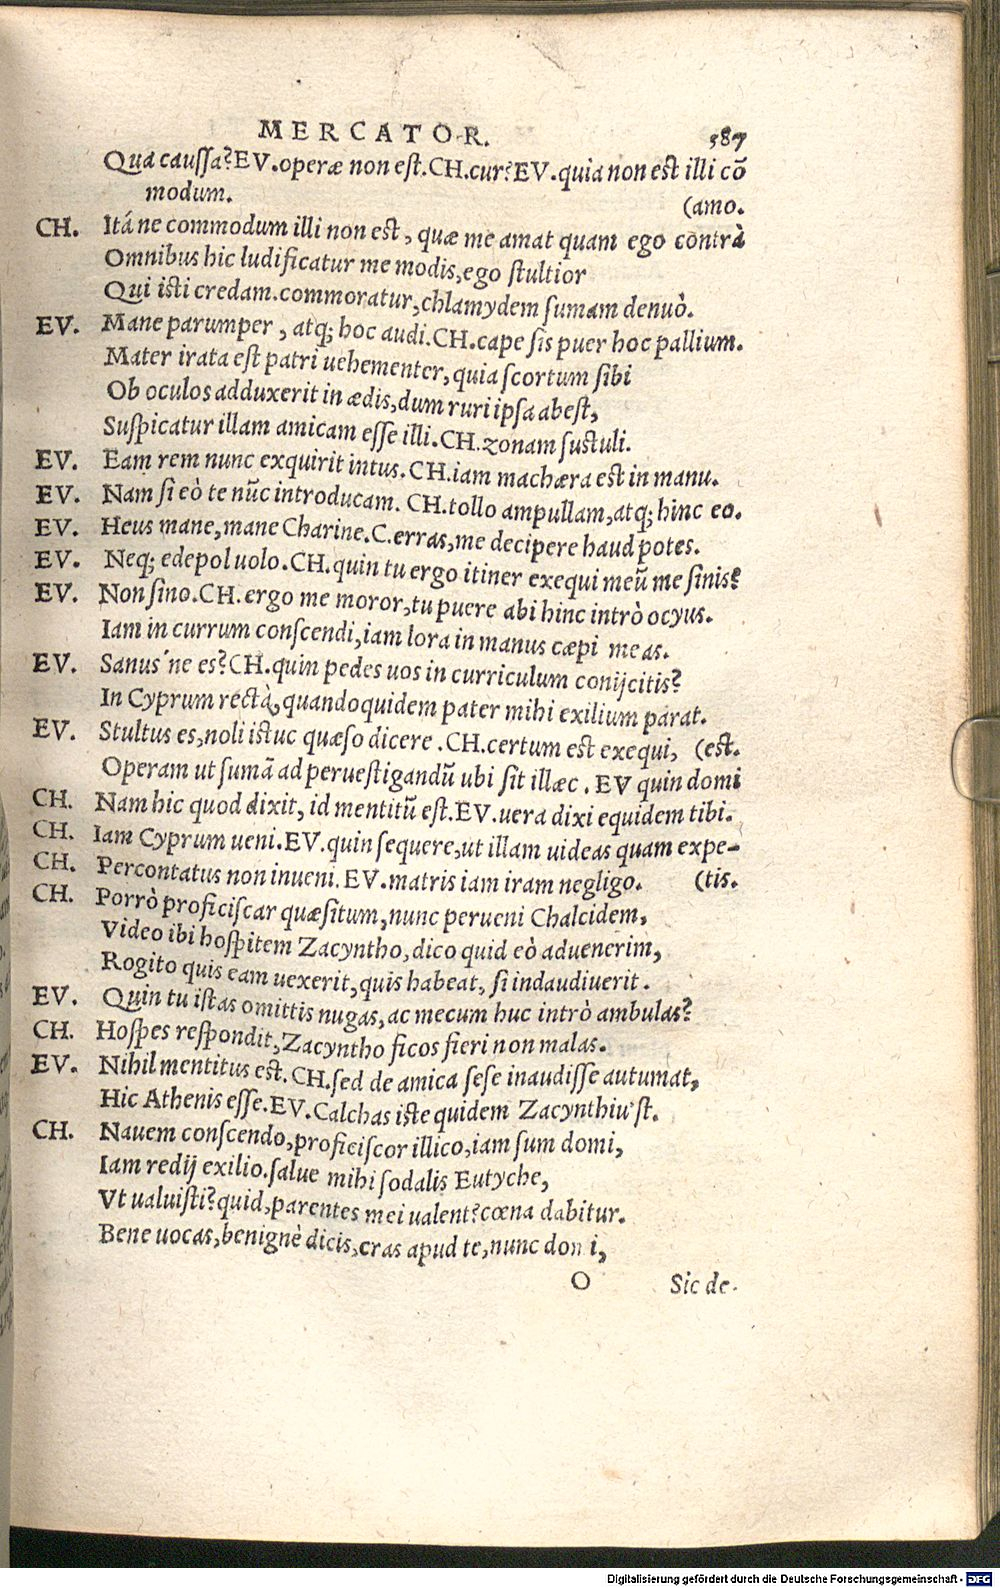 MERCATOR. 587
Qua caussa? EV. operæ non est. CH. cur? EV. quia non est illi cō
modum. (amo.
CH. Itá ne commodum illi non est, quæ me amat quam ego contrà
Omnibus hic ludificatur me modis, ego stultior
Qui isti credam. commoratur, chlamydem sumam denuò.
EV. Mane parumper, atq; hoc audi. CH. cape sis puer hoc pallium.
Mater irata est patri uehementer, quia scortum sibi
Ob oculos adduxerit in ædis, dum ruri ipsa abest,
Suspicatur illam amicam esse illi. CH. zonam sustuli.
EV. Eam rem nunc exquirit intus. CH. iam machæra est in manu.
EV. Nam si eò te nūc introducam. CH. tollo ampullam, atq; hinc eo.
EV. Heus mane, mane Charine. C. erras, me decipere haud potes.
EV. Neq; edepol uolo. CH. quin tu ergo itiner exequi meū me sinis?
EV. Non sino. CH. ergo me moror, tu puere abi hinc intrò ocyus.
Iam in currum conscendi, iam lora in manus cæpi meas.
EV. Sanus'ne es? CH. quin pedes uos in curriculum conijcitis?
In Cyprum rectà, quandoquidem pater mihi exilium parat.
EV. Stultus es, noli istuc quæso dicere. CH. certum est exequi, (est.
Operam ut sumā ad peruestigandū ubi sit illæc. EV quin domi
CH. Nam hic quod dixit, id mentitū est. EV. uera dixi equidem tibi.
CH. Iam Cyprum ueni. EV. quin sequere, ut illam uideas quam expe-
CH. Percontatus non inueni. EV. matris iam iram negligo. (tis.
CH. Porrò proficiscar quæsitum, nunc perueni Chalcidem,
Video ibi hospitem Zacyntho, dico quid eò aduenerim,
Rogito quis eam uexerit, quis habeat, si indaudiuerit.
EV. Quin tu istas omittis nugas, ac mecum huc intrò ambulas?
CH. Hospes respondit, Zacyntho ficos fieri non malas.
EV. Nihil mentitus est. CH. sed de amica sese inaudisse autumat,
Hic Athenis esse. EV. Calchas iste quidem Zacynthiu'st.
CH. Nauem conscendo, proficiscor illico, iam sum domi,
Iam redij exilio. salue mihi sodalis Eutyche,
Vt ualuisti? quid, parentes mei ualent? cœna dabitur.
Bene uocas, benignè dicis, cras apud te, nunc domi,
O Sic de-
Digitalisierung gefördert durch die Deutsche Forschungsgemeinschaft - DFG